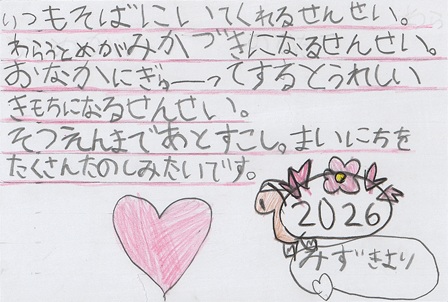 いつもそばにいてくれるせんせい。
わらうとめがみかづきになるせんせい。
おなかにぎゅーってするとうれしい
きもちになるせんせい。
そつえんまであとすこし。まいにちを
たくさんたのしみたいです。
2026